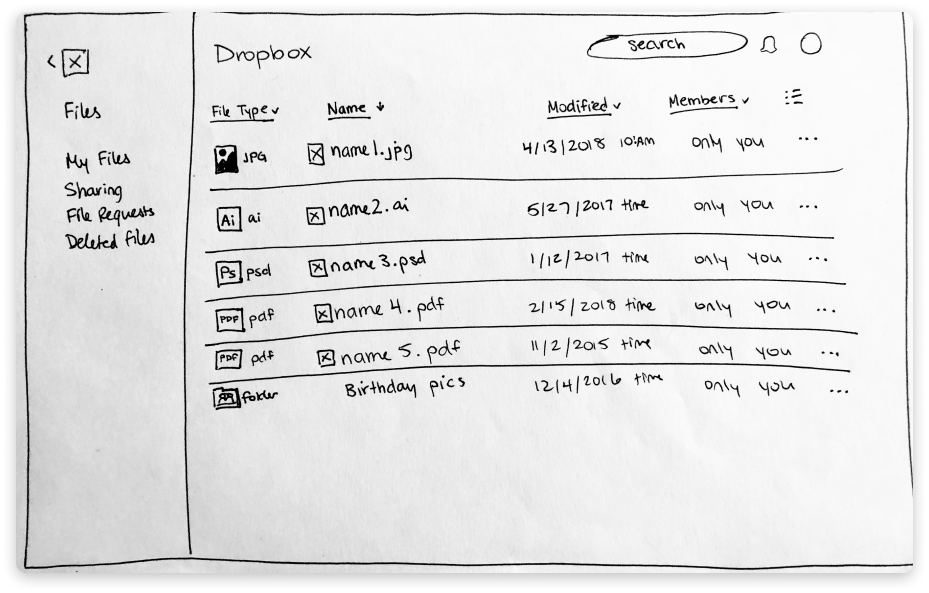 Dropbox
search
Files
My Files
Sharing
File Requests
Deleted files
File Type Name Modified Members
JPG name1.jpg 4/13/2018 10:AM only you ...
Ai ai name2.ai 5/27/2017 time only you ...
Ps psd name3.psd 1/12/2017 time only you ...
PDF pdf name 4.pdf 2/15/2018 time only you ...
PDF pdf name 5.pdf 11/2/2015 time only you ...
folder Birthday pics 12/4/2016 time only you ...